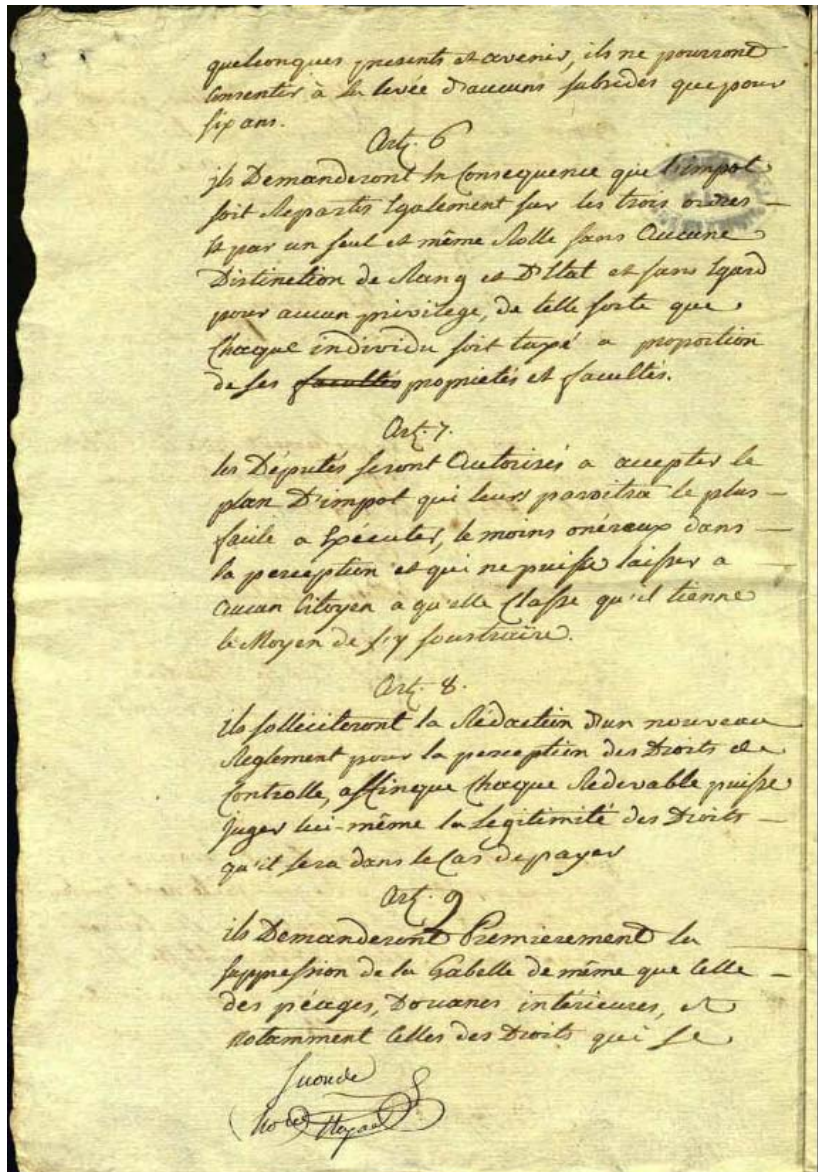 quelconques presents et avenir, ils ne pourront
Consentir à la levée d'aucuns subsides que pour
six ans.
Art. 6
ils Demanderont En Consequence que l'impot
soit Repartis Egalement sur les trois ordres —
Et par un seul et même Rolle sans Aucune
Distinction de Rang et D'Etat et sans Egard
pour aucun privilege, de telle sorte que
Chaque individu soit taxé a proportion
de ses facultés proprietés et facultés.
Art. 7.
les Députés seront Autorisés a accepter le
plan D'impot qui leurs paroitra le plus —
facile a Exécuter, le moins onéreux dans —
la perception et qui ne puisse laisser a
Aucun Citoyen a qu'elle Classe qu'il tienne
le Moyen de s'y soustraire.
Art. 8.
ils solliciteront la Rédaction d'un nouveau
Reglement pour la perception des Droits de
Controlle, affinque Chaque Redevable puisse
Juger lui-même la Legitimité des Droits —
qu'il sera dans le Cas de payer
Art. 9
ils Demanderont Premierement la
suppression de la Gabelle de même que Celle —
des péages, Douanes intérieures, et
Notamment Celles des Droits qui se